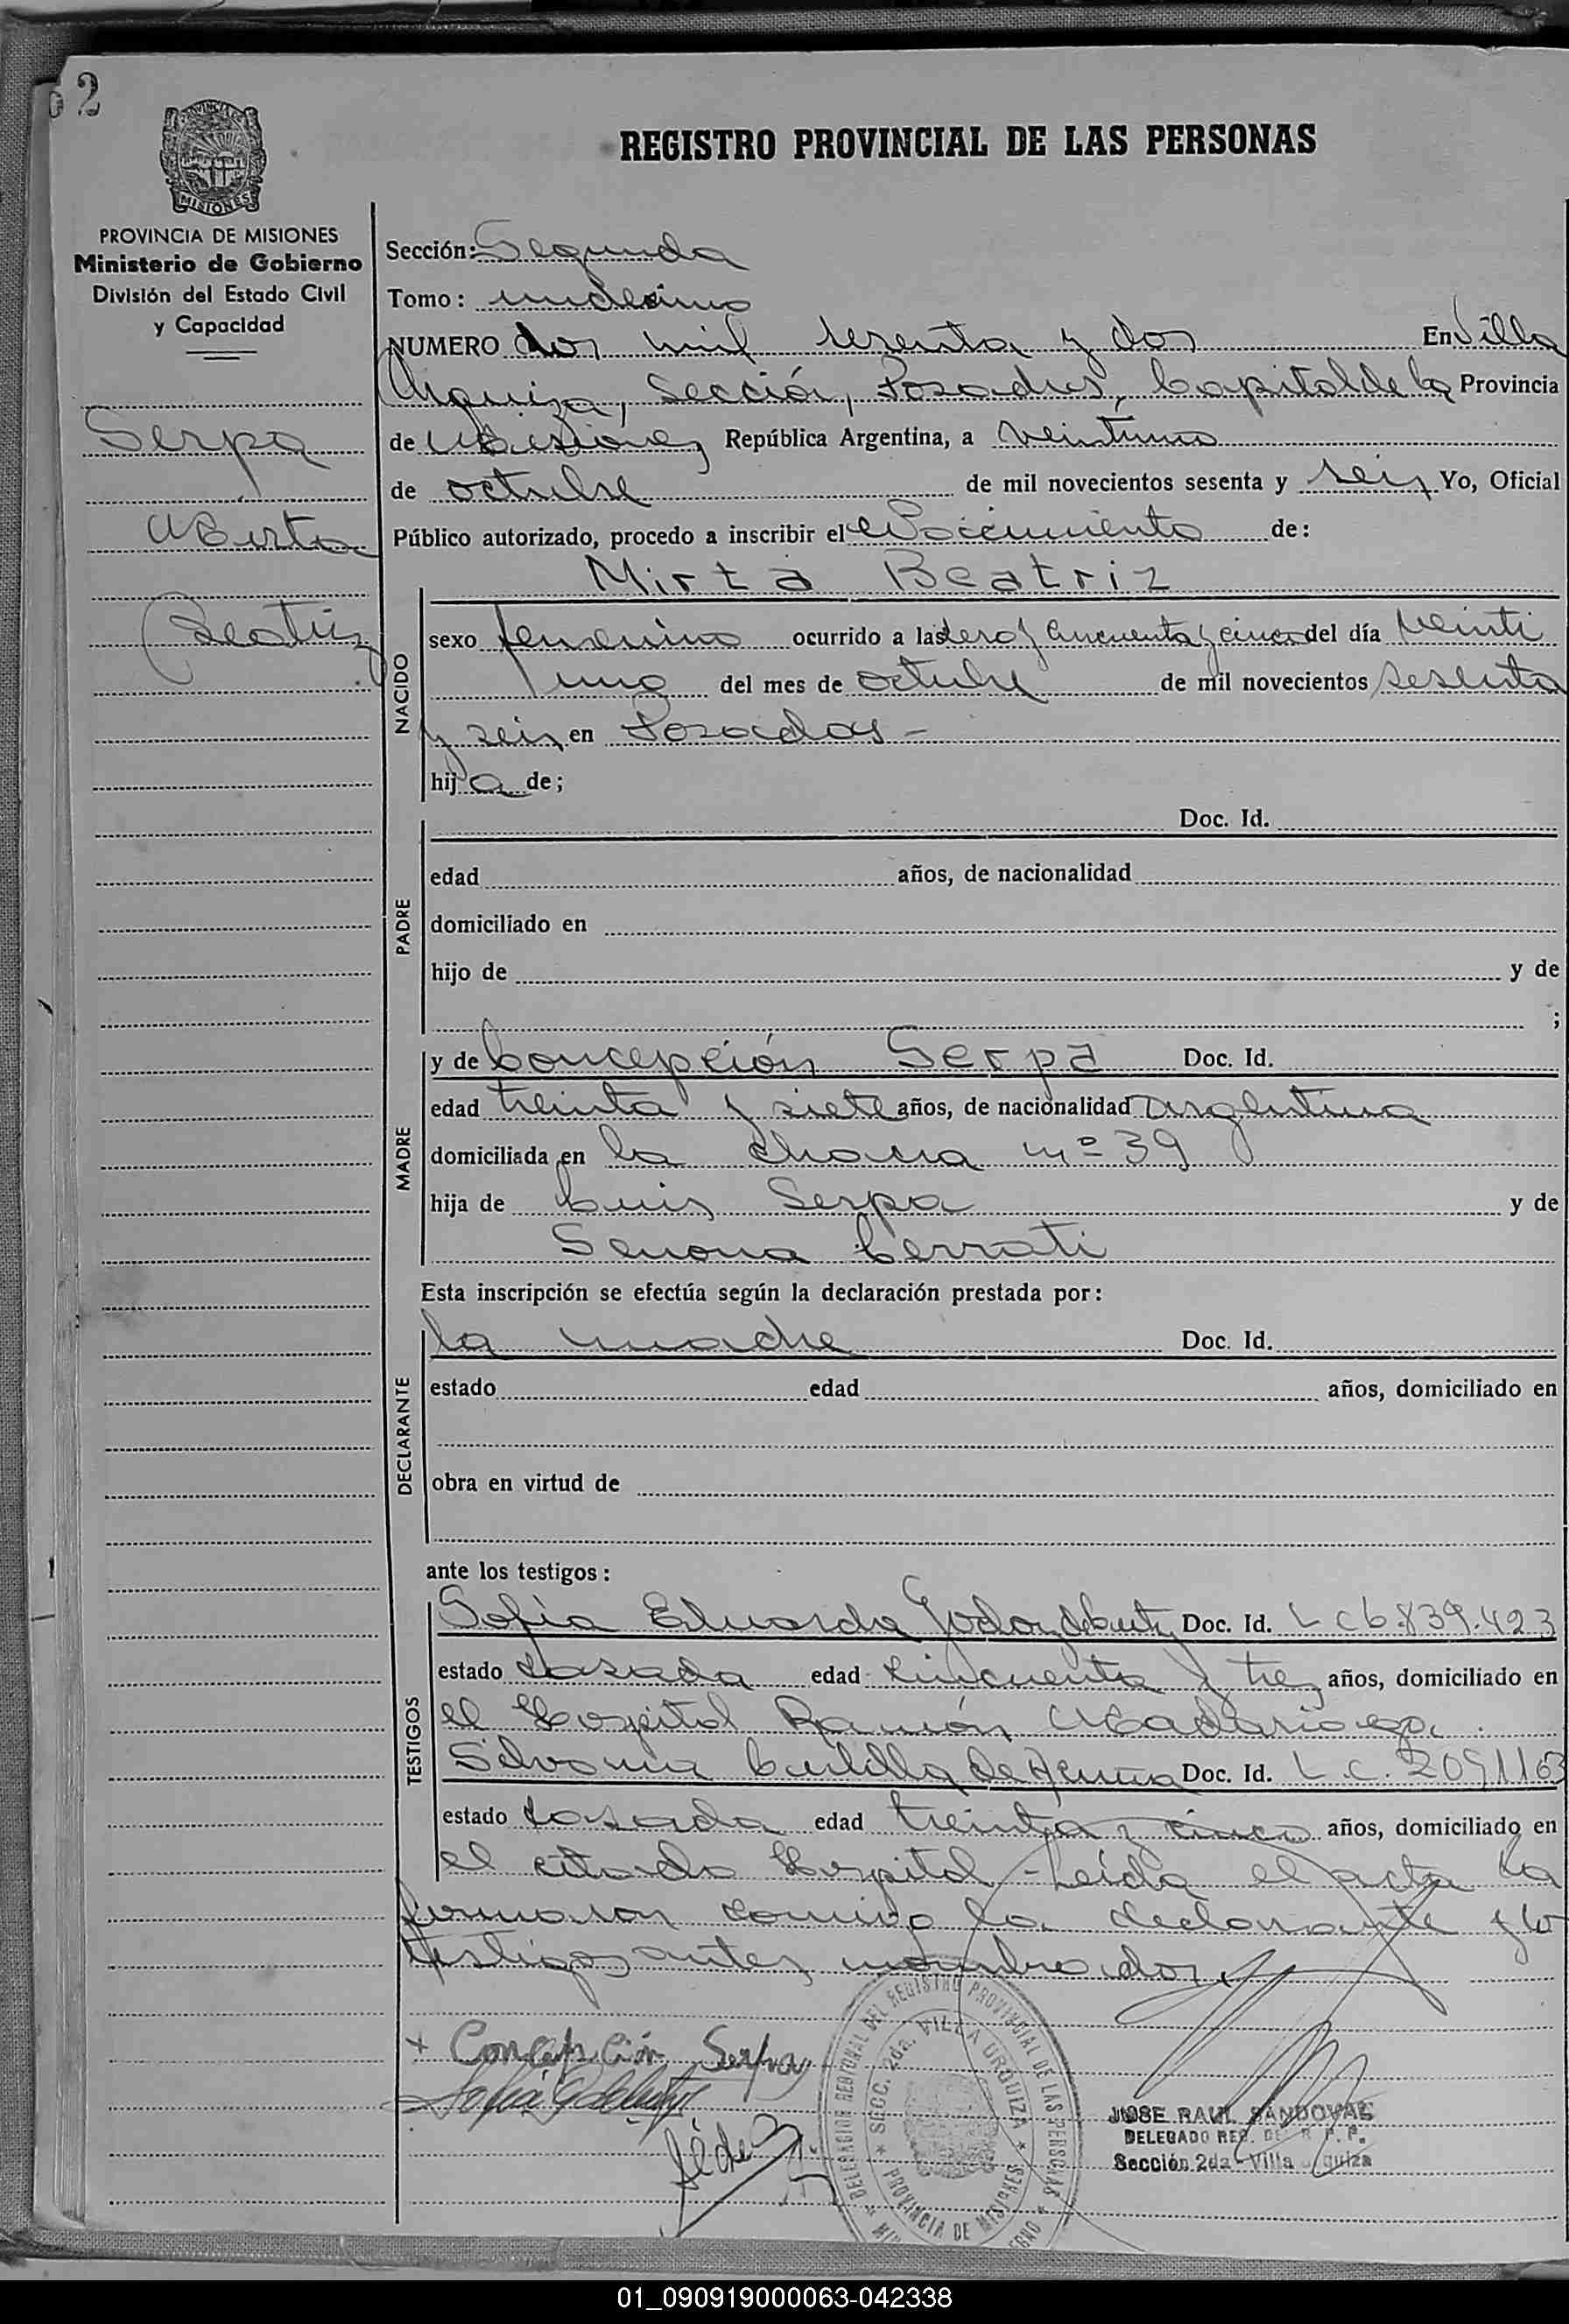 62
REGISTRO PROVINCIAL DE LAS PERSONAS
PROVINCIA DE MISIONES
Ministerio de Gobierno
División del Estado Civil
y Capacidad
Serpa
Mirta
Beatriz
Sección: Segunda
Tomo: undesimo
NUMERO dos mil sesenta y dos En Villa
Urquiza, Sección, Posadas, Capital de la Provincia
de Misiones República Argentina, a veintiuno
de octubre de mil novecientos sesenta y seis Yo, Oficial
Público autorizado, procedo a inscribir el Nacimiento de:
Mirta Beatriz
NACIDO
sexo femenino ocurrido a las cero y cincuenta y cinco del día veinti
uno del mes de octubre de mil novecientos sesenta
y seis en Posadas -
hija de;
PADRE
Doc. Id.
edad años, de nacionalidad
domiciliado en
hijo de y de
;
MADRE
y de Concepción Serpa Doc. Id.
edad treinta y siete años, de nacionalidad argentina
domiciliada en la chacra nº 39
hija de Luis Serpa y de
Cerrati
Esta inscripción se efectúa según la declaración prestada por:
DECLARANTE
la madre Doc. Id.
estado edad años, domiciliado en
obra en virtud de
ante los testigos:
TESTIGOS
Sofia Eduarda Doc. Id. L C 6.839.423
estado casada edad cincuenta y tres años, domiciliado en
el Hospital Ramón Madariaga
Silvania de Acuña Doc. Id. L.C. 2091163
estado casada edad treinta y cinco años, domiciliado en
el citado Hospital - Leída el acta la
firmaron conmigo la declarante y los
testigos antes nombrados
+ Concepción Serpa
DELEGACION REGIONAL DEL REGISTRO PROVINCIAL DE LAS PERSONAS
SECC. 2da. VILLA URQUIZA
PROVINCIA DE MISIONES
JOSE RAUL SANDOVAL
DELEGADO REG. DEL R. P. P.
Sección 2da - Villa Urquiza
01_090919000063-042338